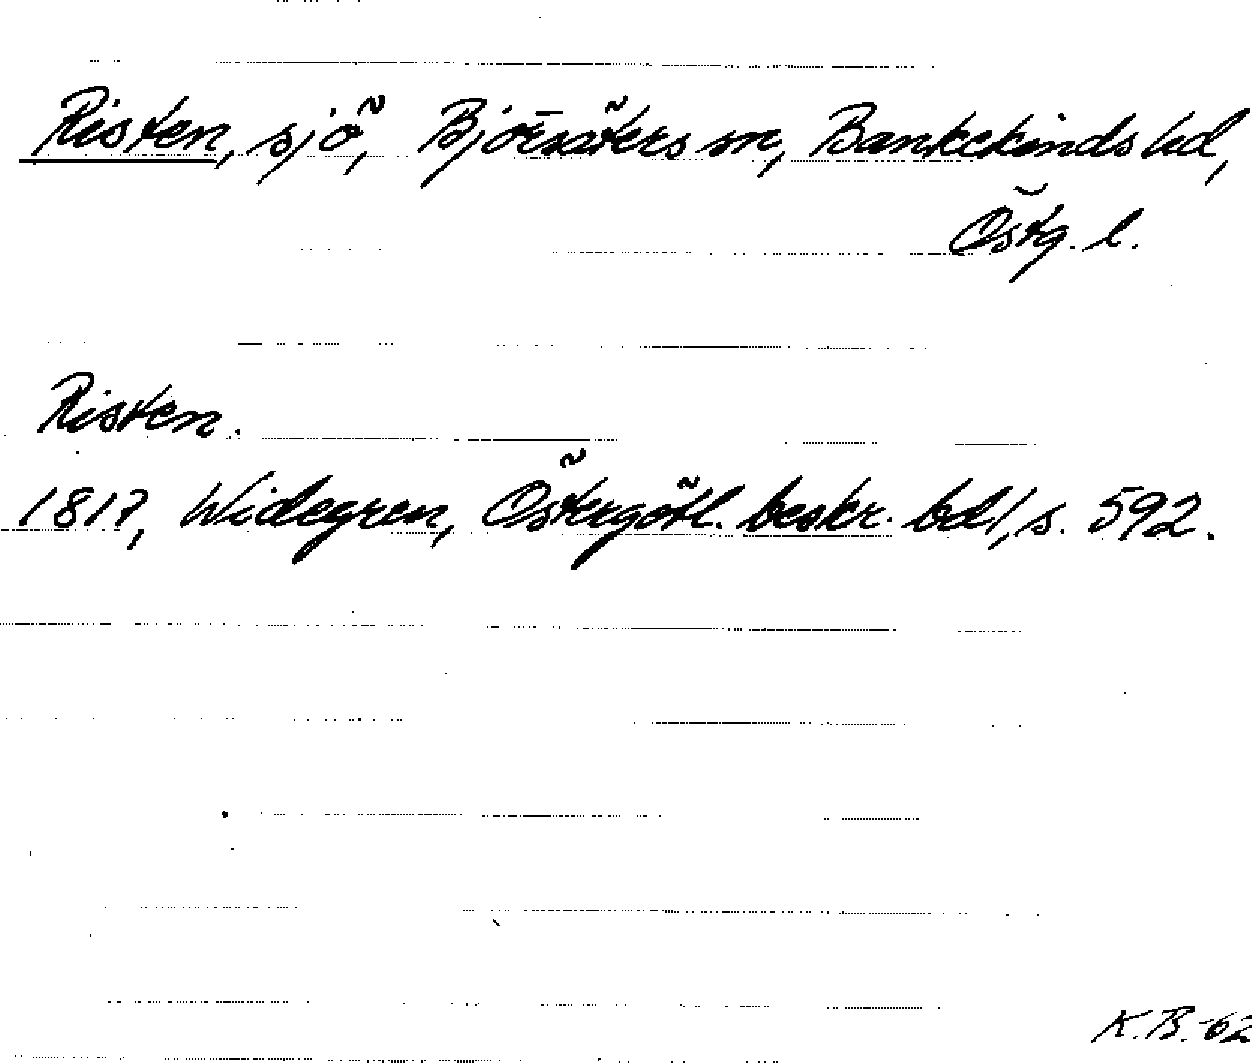 Risten, sjö, Björsäters sn, Bankekinds hd,
Östg. l.
Risten.
1817, Widegren, Östergötl. beskr. bd 1, s. 592.
K.B.-62